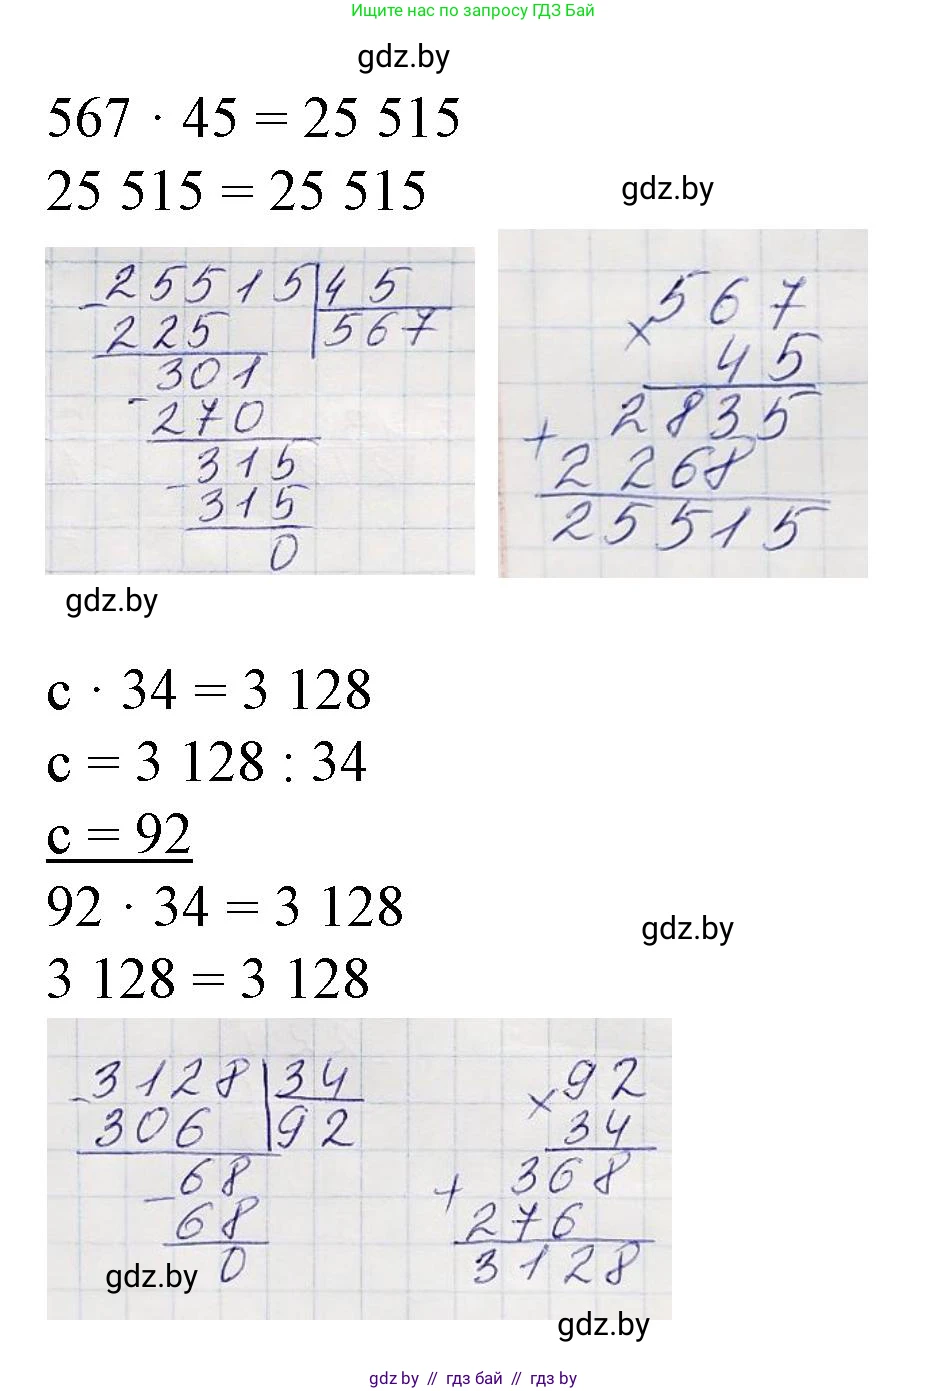 Ищите нас по запросу ГДЗ Бай
gdz.by
567 · 45 = 25 515
25 515 = 25 515
gdz.by
- 25515 | 45
225 | 567
- 301
270
- 315
315
0
567
× 45
2835
+ 2268
25515
gdz.by
c · 34 = 3 128
c = 3 128 : 34
c = 92
92 · 34 = 3 128
gdz.by
3 128 = 3 128
- 3128 | 34
306 | 92
- 68
68
0
gdz.by
92
× 34
368
+ 276
3128
gdz.by
gdz by // гдз бай // гдз by